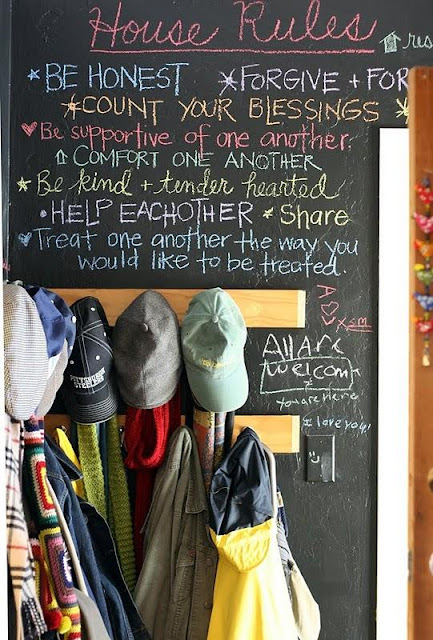 House Rules
res
BE HONEST FORGIVE + FOR
COUNT YOUR BLESSINGS
Be supportive of one another.
COMFORT ONE ANOTHER
Be kind + tender hearted
HELP EACHOTHER Share
Treat one another the way you
would like to be treated.
All Are
welcome
you are Here
I love you!
PITTSBURGH
STEELERS